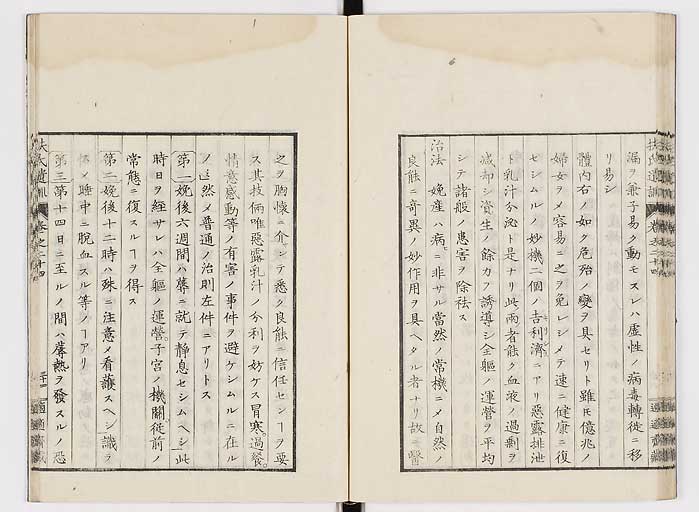 漏ヲ兼子易ク動モスレハ虚性ノ病毒轉徙ニ移
リ易シ
體内右ノ如ク危殆ノ變ヲ具セリト雖𪜈億兆ノ
婦女ヲメ容易ニ之ヲ免レシメテ速ニ健康ニ復
セシムルノ妙機二個ノ吉利濟ニアリ惡露排泄
ト乳汁分泌ト是ナリ此兩者能ク血液ノ過剰ヲ
減却シ資生ノ餘カヲ誘導シ全軀ノ運營ヲ平均
シテ諸般ノ患害ヲ除祛ス
治法 娩產ハ病ニ非サル當然ノ常機ニメ自然ノ
良能ニ奇異ノ妙作用ヲ具ヘタル者ナリ故ニ醫
之ヲ胸懷ニ介シテ悉ク良能ニ信任センヿヲ要
ス其技倆唯惡露乳汁ノ分利ヲ妨ケス冒寒過餐
情意感動等ノ有害ノ事件ヲ避ケシムルニ在ル
ノミ然メ普通ノ治則左件ニアリトス
第一娩後六週間ハ蓐ニ就テ靜息セシムヘシ此
時日ヲ經サレハ全軀ノ運營子宮ノ機關従前ノ
常態ニ復スルヿヲ得ス
第二娩後十二時ハ殊ニ注意メ看護スヘシ識ラ
メ睡中ニ脫血スル等ノヿアリ
第三第十四日ニ至ルノ間ハ蓐熱ヲ發スルノ恐
扶氏遺訓 卷之二十四